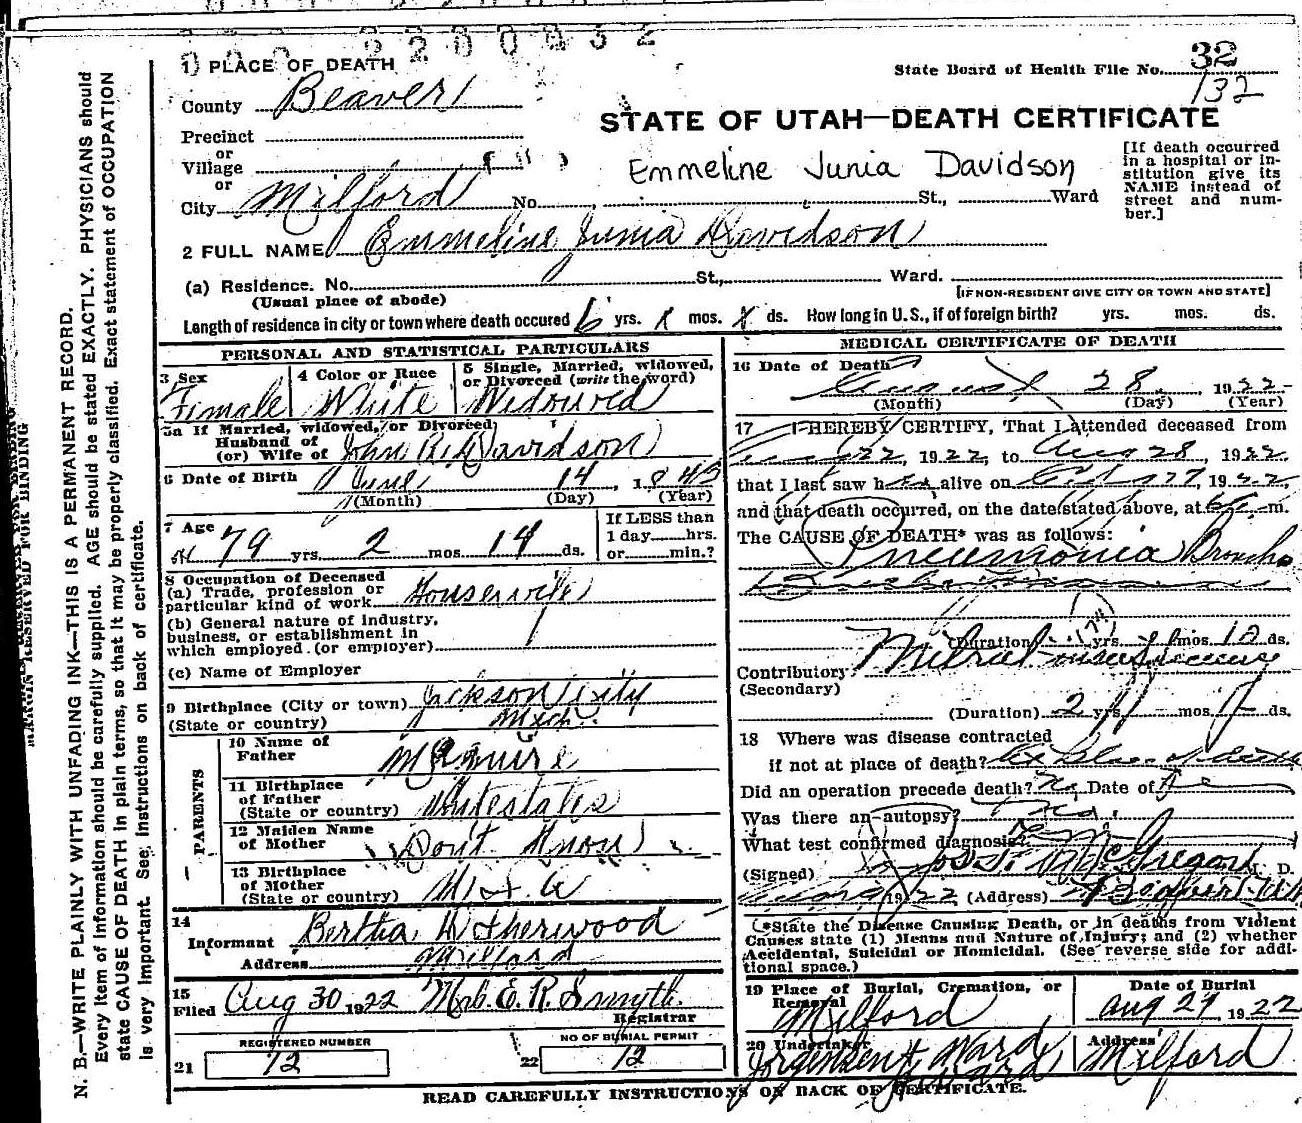 32
State Board of Health File No. 132
1) PLACE OF DEATH
County Beaver
STATE OF UTAH—DEATH CERTIFICATE
Precinct
or
Village
or
City Milford No. St., Ward
Emmeline Junia Davidson
[If death occurred
in a hospital or in-
stitution give its
NAME instead of
street and num-
ber.]
2 FULL NAME Emmeline Junia Davidson
(a) Residence. No. St., Ward.
(Usual place of abode)
[IF NON-RESIDENT GIVE CITY OR TOWN AND STATE]
Length of residence in city or town where death occured 6 yrs. mos. ds. How long in U.S., if of foreign birth? yrs. mos. ds.
PERSONAL AND STATISTICAL PARTICULARS
3 Sex
Female
4 Color or Race
White
5 Single, Married, widowed,
or Divorced (write the word)
Widowed
5a If Married, widowed, or Divorced
Husband of
(or) Wife of John R. Davidson
6 Date of Birth June 14, 1843
(Month) (Day) (Year)
7 Age
79 yrs. 2 mos. 14 ds.
If LESS than
1 day hrs.
or min.?
8 Occupation of Deceased
(a) Trade, profession or
particular kind of work Housewife
(b) General nature of Industry,
business, or establishment in
which employed (or employer)
(c) Name of Employer
9 Birthplace (City or town) Jackson City
(State or country) Mich.
PARENTS
10 Name of
Father McGuire
11 Birthplace
of Father
(State or country)
12 Maiden Name
of Mother Don't Know
13 Birthplace
of Mother
(State or country)
14
Informant Bertha
Address Milford
15
Filed Aug 30 1922 Mrs. E. R. Smyth.
Registrar
REGISTERED NUMBER
21 12
NO OF BURIAL PERMIT
22 12
MEDICAL CERTIFICATE OF DEATH
16 Date of Death
August 28, 1922
(Month) (Day) (Year)
17 I HEREBY CERTIFY, That I attended deceased from
Aug 22, 1922, to Aug 28, 1922
that I last saw her alive on 27, 1922,
and that death occurred, on the date stated above, at m.
The CAUSE OF DEATH* was as follows:
Pneumonia Broncho
(Duration) yrs. mos. 10 ds.
Contributory Mitral insufficiency
(Secondary)
(Duration) 2 yrs. mos. ds.
18 Where was disease contracted
if not at place of death?
Did an operation precede death? No Date of
Was there an autopsy? No.
What test confirmed diagnosis?
(Signed) McGregor M. D.
1922 (Address) Beaver Utah
(*State the Disease Causing Death, or in deaths from Violent
Causes state (1) Means and Nature of Injury; and (2) whether
Accidental, Suicidal or Homicidal. (See reverse side for addi-
tional space.)
19 Place of Burial, Cremation, or
Removal
Milford
Date of Burial
Aug 29, 1922
20 Undertaker
Jorgensen & Ward
Address
Milford
READ CAREFULLY INSTRUCTIONS ON BACK OF CERTIFICATE.
N. B.—WRITE PLAINLY WITH UNFADING INK—THIS IS A PERMANENT RECORD.
Every item of information should be carefully supplied. AGE should be stated EXACTLY. PHYSICIANS should
state CAUSE OF DEATH in plain terms, so that it may be properly classified. Exact statement of OCCUPATION
is very important. See Instructions on back of certificate.
MARGIN RESERVED FOR BINDING